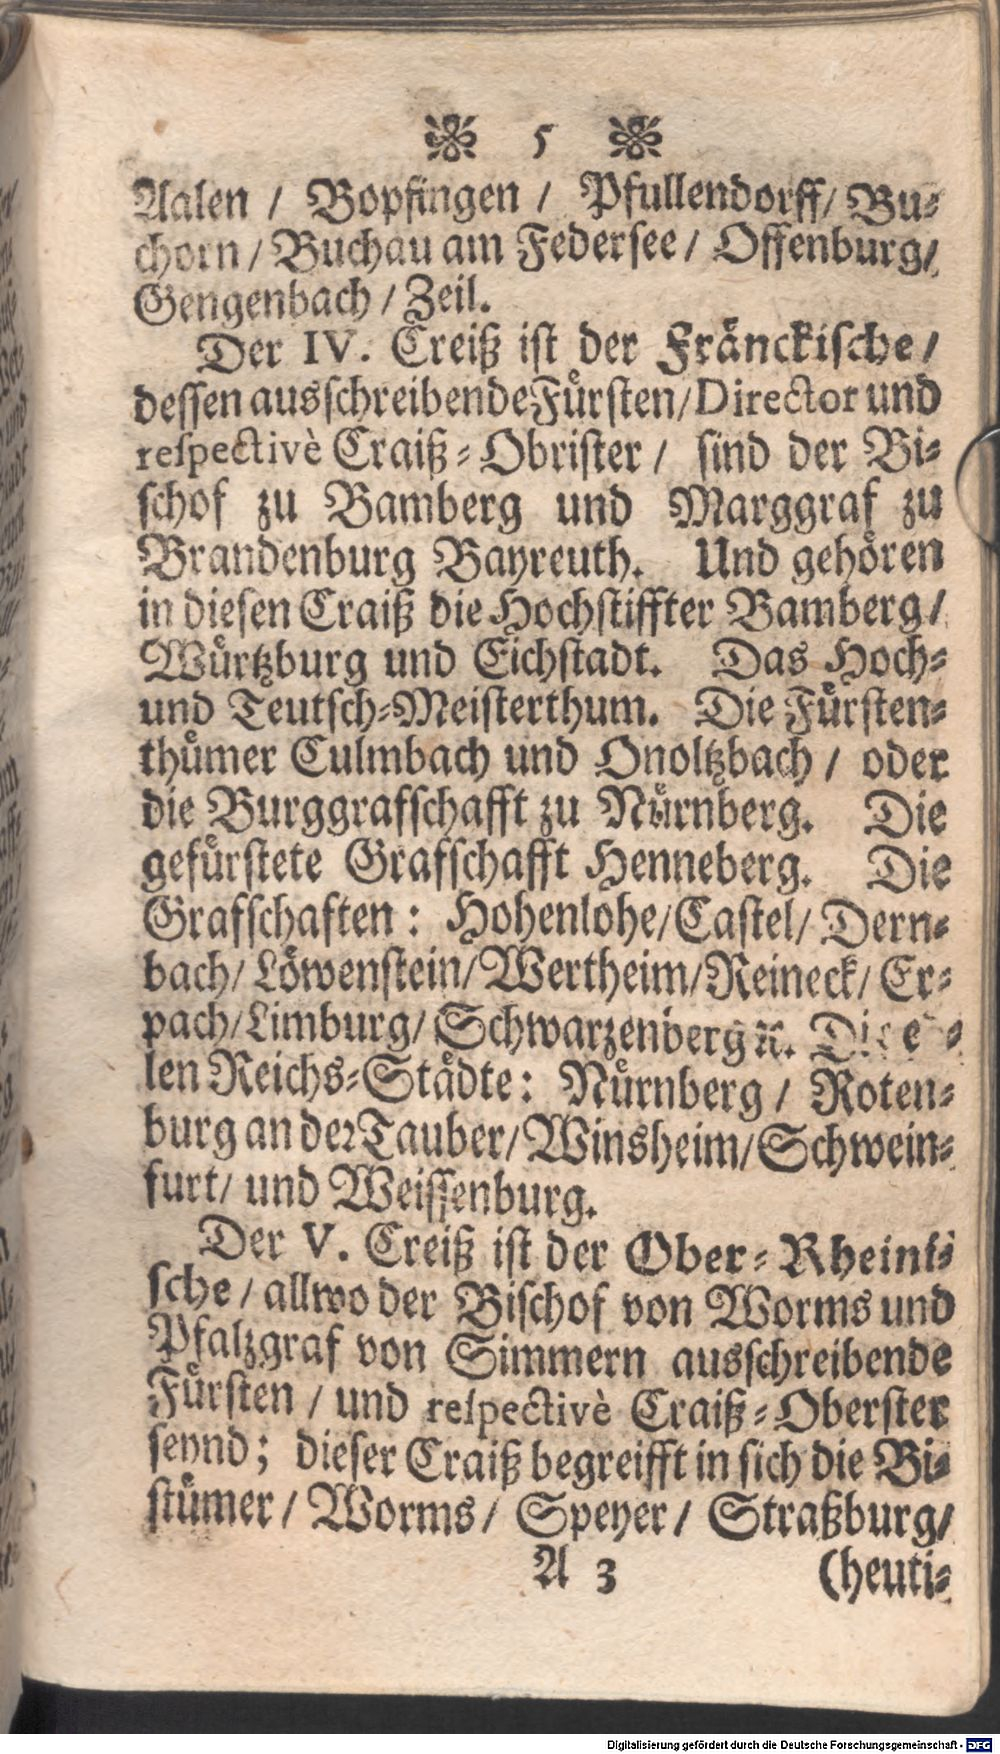 5
Aalen / Bopfingen / Pfullendorff / Bu-
chorn / Buchau am Federsee / Offenburg /
Gengenbach / Zeil.
Der IV. Creiß ist der Fränckische /
dessen ausschreibende Fürsten / Director und
respectivè Craiß-Obrister / sind der Bi-
schof zu Bamberg und Marggraf zu
Brandenburg Bayreuth. Und gehören
in diesen Craiß die Hochstiffter Bamberg /
Würtzburg und Eichstadt. Das Hoch-
und Teutsch-Meisterthum. Die Fürsten-
thümer Culmbach und Onoltzbach / oder
die Burggrafschafft zu Nürnberg. Die
gefürstete Grafschafft Henneberg. Die
Grafschaften: Hohenlohe / Castel / Dern-
bach / Löwenstein / Wertheim / Reineck / Er-
pach / Limburg / Schwarzenberg ꝛc. Die
len Reichs-Städte: Nürnberg / Roten-
burg an der Tauber / Winsheim / Schwein-
furt / und Weissenburg.
Der V. Creiß ist der Ober-Rheini-
sche / allwo der Bischof von Worms und
Pfalzgraf von Simmern ausschreibende
Fürsten / und respectivè Craiß-Oberster
seynd; dieser Craiß begreifft in sich die Bi-
stümer / Worms / Speyer / Straßburg /
A 3 (heuti-
Digitalisierung gefördert durch die Deutsche Forschungsgemeinschaft - DFG